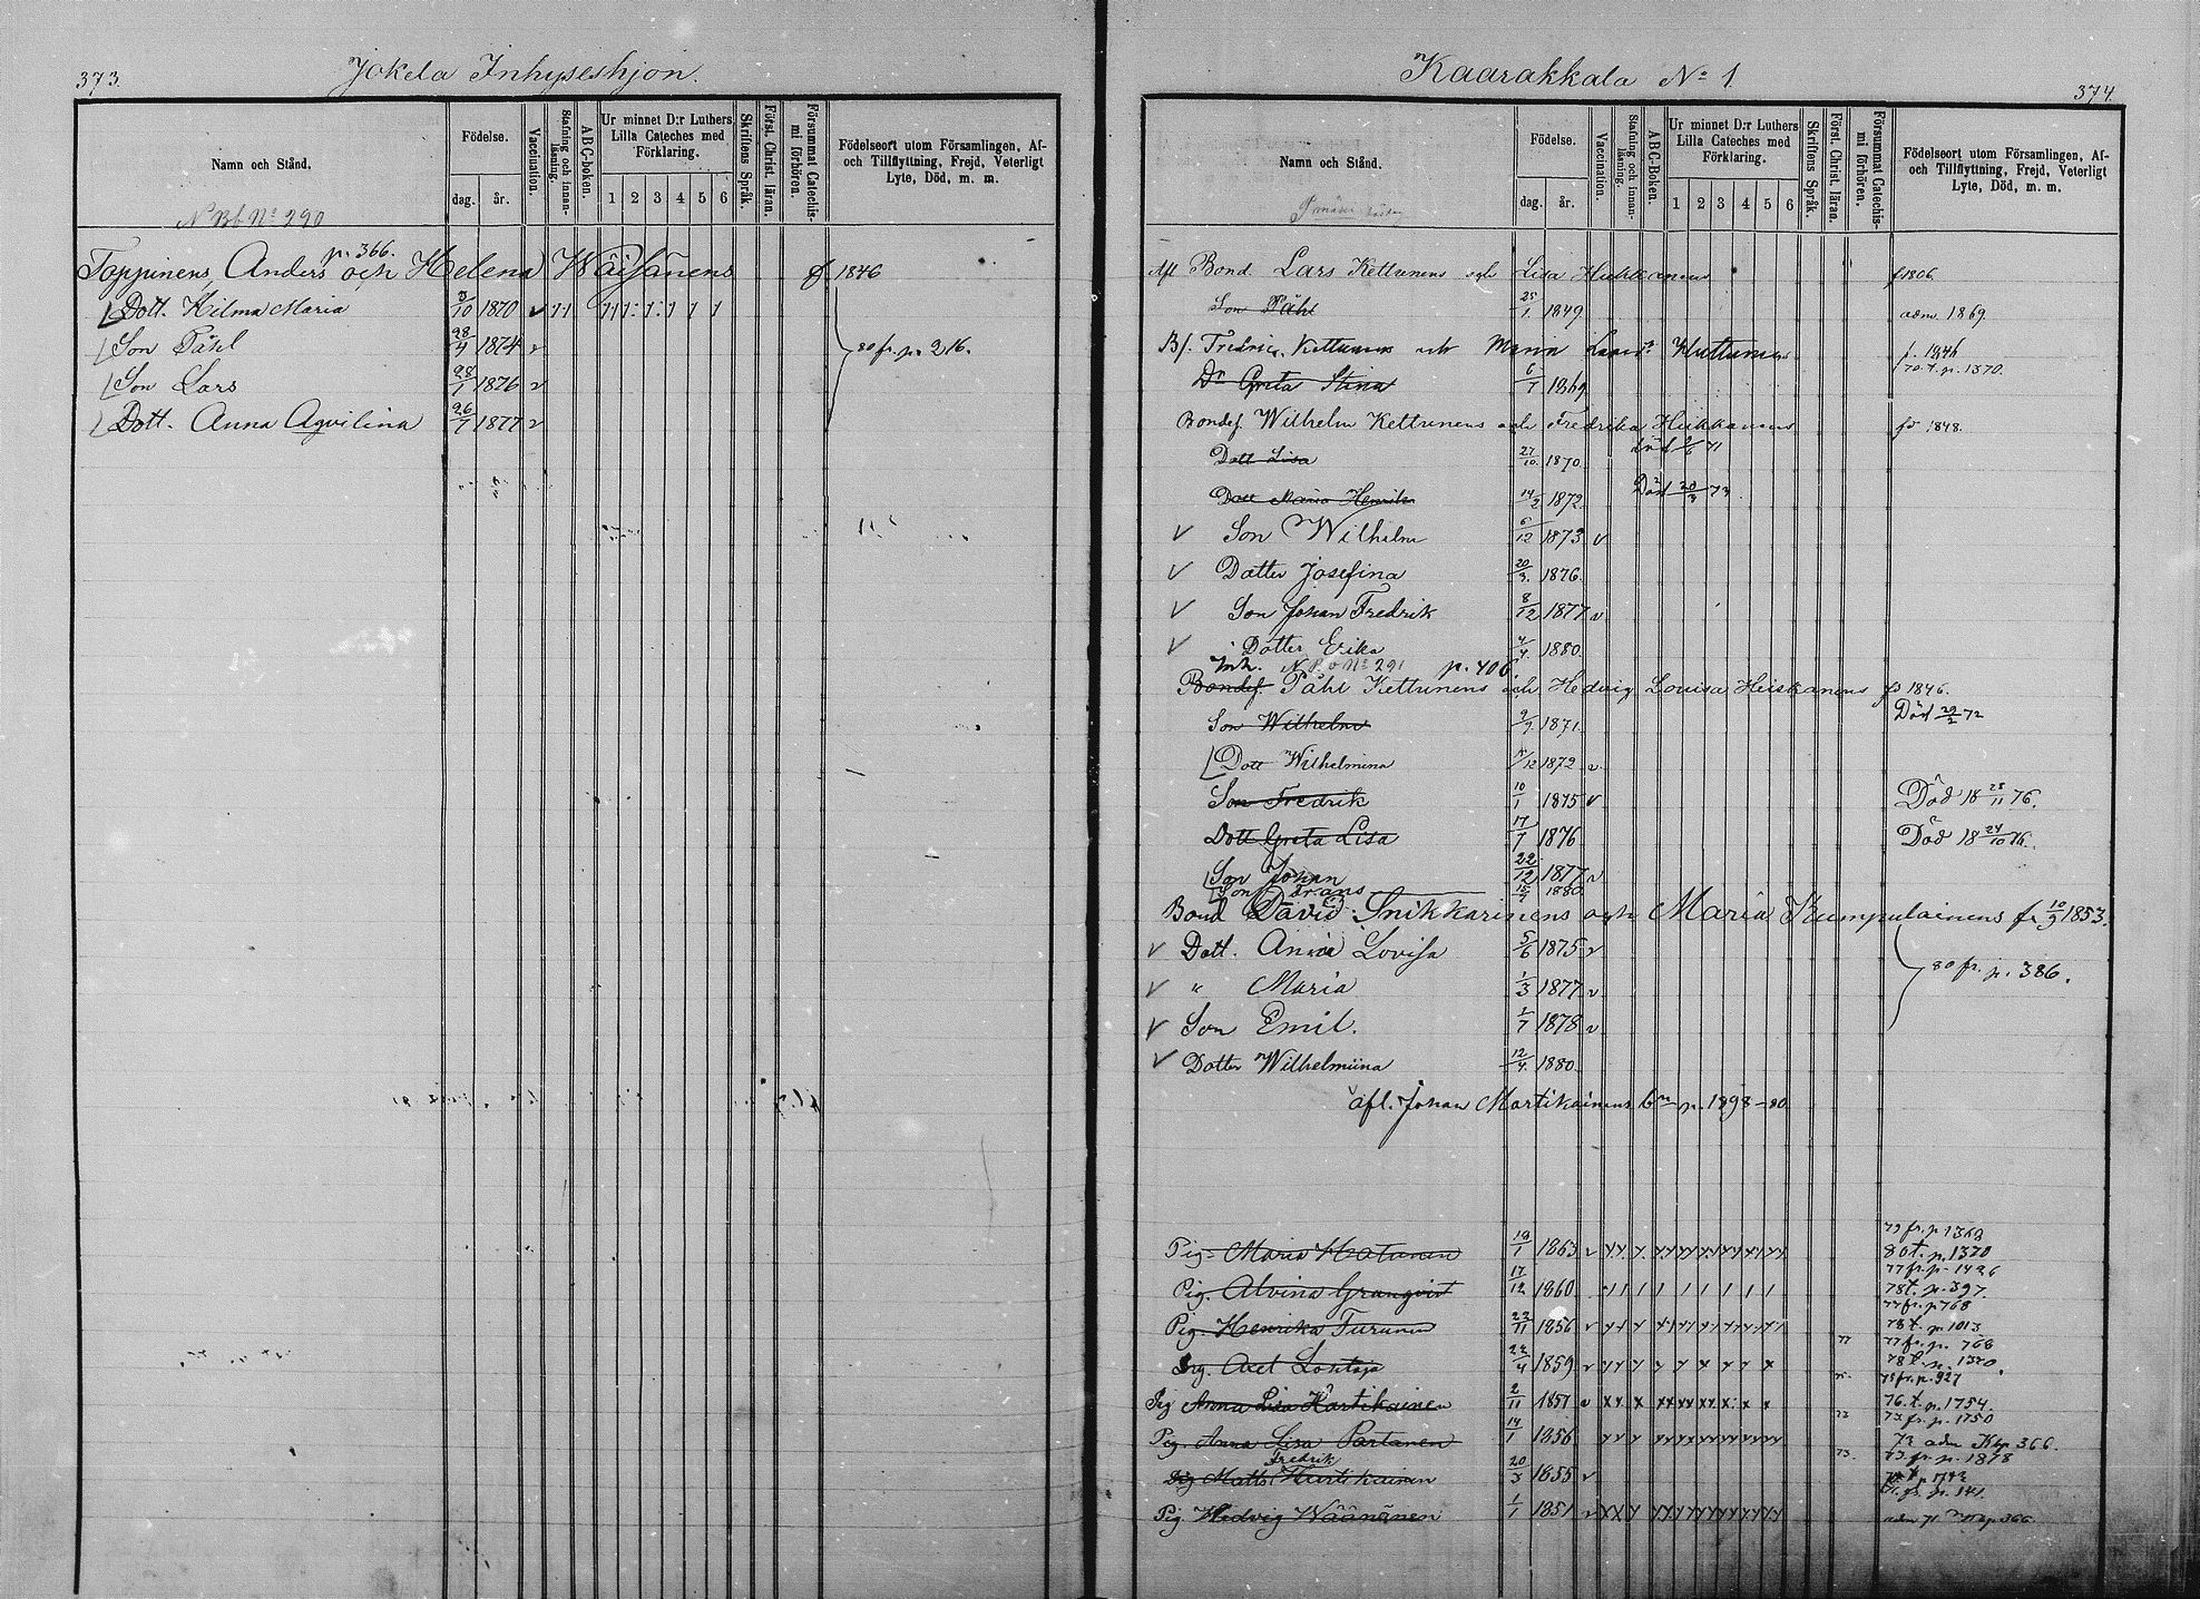 373.
Jokela Inhyseshjon.
Namn och Stånd.
Födelse.
dag.
år.
Vaccination.
Stafning och innanläsning.
ABC-boken.
Ur minnet D:r Luthers Lilla Cateches med Förklaring.
1 2 3 4 5 6
Skriftens Språk.
Först. Christ. läran.
Försummat Catechismi förhören.
Födelseort utom Församlingen, Af- och Tillflyttning, Frejd, Veterligt Lyte, Död, m. m.
N Bb No 290
p. 366.
Toppinens, Anders och Helena Wäisänens f 1846
Dott. Hilma Maria 3/10 1870
Son Påhl 28/4 1874 v
80 fr. p. 216.
Son Lars 28/1 1876 v
Dott. Anna Aqvilina 26/7 1877 v
Kaarakkala No 1.
374.
Namn och Stånd.
Födelse.
dag.
år.
Vaccination.
Stafning och innanläsning.
ABC-Boken.
Ur minnet D:r Luthers Lilla Cateches med Förklaring.
1 2 3 4 5 6
Skriftens Språk.
Först. Christ. läran.
Försummat Catechismi förhören.
Födelseort utom Församlingen, Af- och Tillflyttning, Frejd, Veterligt Lyte, Död, m. m.
Afl Bond. Lars Kettunens och Lisa Huhkanens f 1806.
Son Påhl 25/1 1849. adm. 1869.
Bf. Fredric. Kettunens och Maria Lovis. Huttunens f. 1846
Dr Greta Stina 6/7 1869 70. t. p. 1370.
Bondef. Wilhelm Kettunens och Fredrika Heikkanens fö 1848.
Dott Lisa 27/10. 1870. död 9/6 71
Dott Maria Henrika 14/2 1872. Död 20/3 73.
V Son Wilhelm 6/12 1873 v
V Dotter Josefina 20/3. 1876.
V Son Johan Fredrik 8/12 1877 v
V Dotter Erika 4/4. 1880.
Inh. N Bb No 291 p. 406
Bondef. Påhl Kettunens och Hedvig Lovisa Heiskanens fö 1846.
Son Wilhelm 9/9. 1871. Död 29/2 72
Dott Wilhelmina /12 1872 v
Son Fredrik 10/1 1875 v Död 18 28/11 76.
Dott Greta Lisa 17/7 1876 Död 18 24/10 76.
Son Johan 22/12 1877 v
Son Frans 15/4 1880
Bond David Snikkarinens och Maria Kumpulainens fr 10/9 1853.
V Dott. Anna Lovisa 5/6 1875 v
80 fr. p. 386.
V " Maria 1/3 1877 v
V Son Emil. 1/7 1878 v
V Dotter Wilhelmiina 12/4. 1880.
afl. Johan Martikainens bn p. 1898 – 80
79 fr. p. 1362
Pig. Maria Hatunen 19/1 1863 v 80 t. p. 1370
77 fr. p. 1426
Pig. Alvina Granqvist 17/12 1860 78 t. p. 397.
77 fr. p 768
Pig. Henrika Turunen 23/11 1856 v 78 t. p. 1013
77 77 fr. p. 766
Drg. Axel Lohtaja 22/4 1859 v 78 t. p. 1370.
75. 75 fr. p. 927
Pig Anna Lisa Hartikainen 2/11 1857 v 76. t. p. 1754.
72 73 fr. p. 1750
Pig. Anna Lisa Partanen 14/1 1856 72 adm Kbp 366.
Fredrik 73. 73. fr. p. 1878
Drg Matts Hartikainen 20/3 1855 v
71. fr. p. 141.
Pig Hedvig Wäänänen 1/1 1851 v adm 71 Kbp. 366